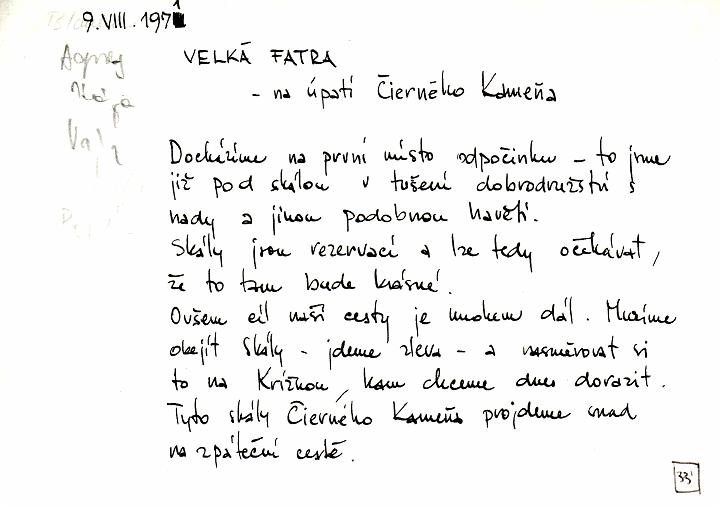 9. VIII. 1971
VELKÁ FATRA
- na úpatí Čierného Kameňa
Docházíme na první místo odpočinku – to jsme
již pod skálou v tušení dobrodružství s
hady a jinou podobnou havětí.
Skály jsou rezervací a lze tedy očekávat,
že to tam bude krásné.
Ovšem cíl naší cesty je mnohem dál. Musíme
obejít Skály - jdeme zleva - a nasměrovat si
to na Križnou, kam chceme dnes dorazit.
Tyto skály Čierného Kameňa projdeme snad
na zpáteční cestě.
33'